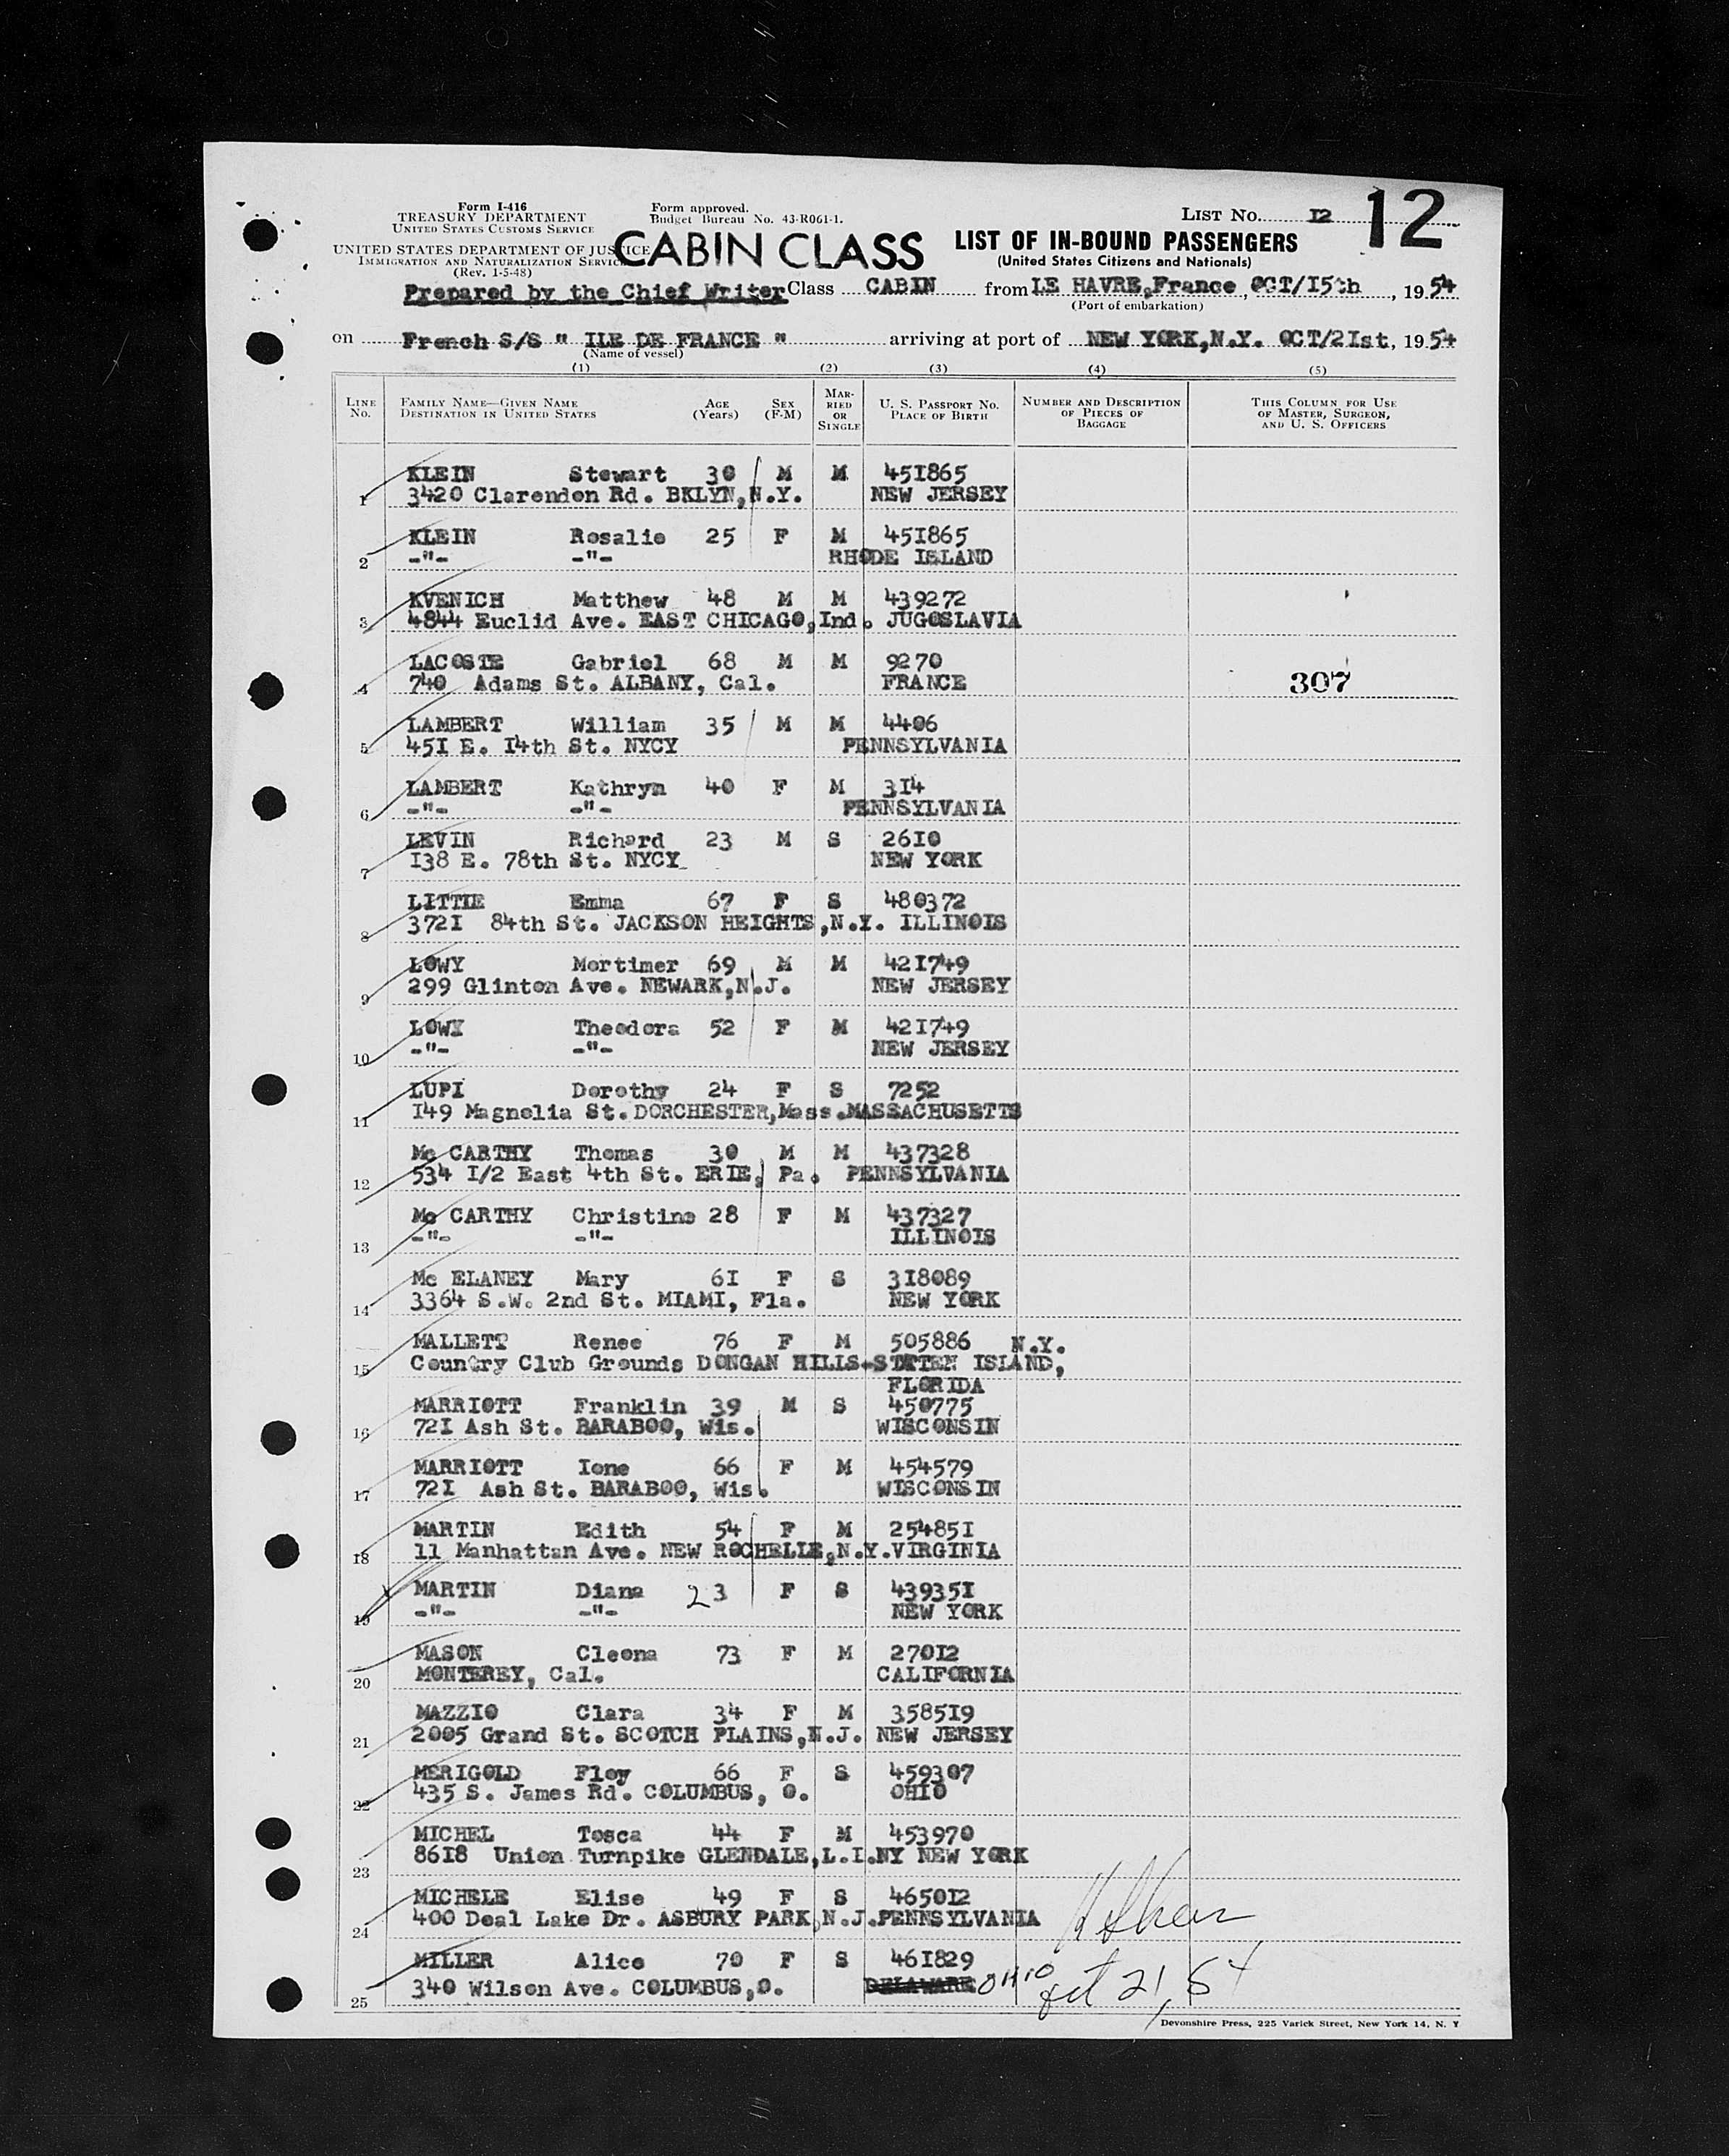 Form I-416
TREASURY DEPARTMENT
UNITED STATES CUSTOMS SERVICE
UNITED STATES DEPARTMENT OF JUSTICE
IMMIGRATION AND NATURALIZATION SERVICE
(Rev. 1-5-48)
Form approved.
Budget Bureau No. 43-R061-1.
CABIN CLASS
LIST No. I2
12
LIST OF IN-BOUND PASSENGERS
(United States Citizens and Nationals)
Prepared by the Chief Writer Class CABIN from LE HAVRE,France, OCT/I5th, 1954
(Port of embarkation)
on French S/S " ILE DE FRANCE " arriving at port of NEW YORK,N.Y. OCT/2Ist, 1954
(Name of vessel)
(1) (2) (3) (4) (5)
LINE No. FAMILY NAME—GIVEN NAME DESTINATION IN UNITED STATES AGE (Years) SEX (F-M) MARRIED OR SINGLE U. S. PASSPORT No. PLACE OF BIRTH NUMBER AND DESCRIPTION OF PIECES OF BAGGAGE THIS COLUMN FOR USE OF MASTER, SURGEON, AND U. S. OFFICERS
KLEIN Stewart 30 M M 45I865
1 3420 Clarendon Rd. BKLYN,N.Y. NEW JERSEY
KLEIN Rosalie 25 F M 45I865
2 -"- -"- RHODE ISLAND
KVENICH Matthew 48 M M 439272
3 4844 Euclid Ave. EAST CHICAGO,Ind. JUGOSLAVIA
LACOSTE Gabriel 68 M M 9270
4 740 Adams St. ALBANY, Cal. FRANCE 307
LAMBERT William 35 M M 4406
5 45I E. I4th St. NYCY PENNSYLVANIA
LAMBERT Kathryn 40 F M 3I4
6 -"- -"- PENNSYLVANIA
LEVIN Richard 23 M S 26I0
7 I38 E. 78th St. NYCY NEW YORK
LITTLE Emma 67 F S 480372
8 372I 84th St. JACKSON HEIGHTS,N.Y. ILLINOIS
LOWY Mortimer 69 M M 42I749
9 299 Glinton Ave. NEWARK,N.J. NEW JERSEY
LOWY Theodora 52 F M 42I749
10 -"- -"- NEW JERSEY
LUPI Dorothy 24 F S 7252
11 I49 Magnolia St. DORCHESTER,Mass. MASSACHUSETTS
Mc CARTHY Thomas 30 M M 437328
12 534 I/2 East 4th St. ERIE, Pa. PENNSYLVANIA
Mc CARTHY Christine 28 F M 437327
13 -"- -"- ILLINOIS
Mc ELANEY Mary 6I F S 3I8089
14 3364 S.W. 2nd St. MIAMI, Fla. NEW YORK
MALLETT Renee 76 F M 505886 N.Y.
15 Country Club Grounds DONGAN HILLS-STATEN ISLAND,
FLORIDA
MARRIOTT Franklin 39 M S 450775
16 72I Ash St. BARABOO, Wis. WISCONSIN
MARRIOTT Ione 66 F M 454579
17 72I Ash St. BARABOO, Wis. WISCONSIN
MARTIN Edith 54 F M 25485I
18 11 Manhattan Ave. NEW ROCHELLE,N.Y. VIRGINIA
MARTIN Diana 23 F S 43935I
19 -"- -"- NEW YORK
MASON Cleona 73 F M 270I2
20 MONTEREY, Cal. CALIFORNIA
MAZZIO Clara 34 F M 3585I9
21 2005 Grand St. SCOTCH PLAINS,N.J. NEW JERSEY
MERIGOLD Floy 66 F S 459307
22 435 S. James Rd. COLUMBUS, O. OHIO
MICHEL Tosca 44 F M 453970
23 86I8 Union Turnpike GLENDALE,L.I.NY NEW YORK
MICHELE Elise 49 F S 4650I2
24 400 Deal Lake Dr. ASBURY PARK,N.J. PENNSYLVANIA
MILLER Alice 70 F S 46I829
25 340 Wilson Ave. COLUMBUS,O. DELAWARE OHIO Oct 21, 54
Devonshire Press, 225 Varick Street, New York 14, N. Y